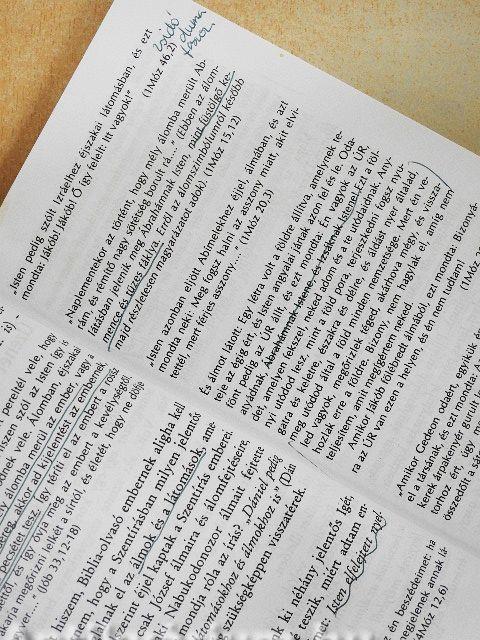 zsidó
„Isten pedig szólt Izráelhez éjszakai látomásban, és ezt
mondta: Jákób! Jákób! Ő így felelt: Itt vagyok!”
(1Móz 46,2)
Naplementekor az történt, hogy mély álomba merült Ab-
rám, és rémítő nagy sötétség borult rá...” (Ebben az álom-
látásban jelenik meg Abrahámnak Isten, mint füstölgő ke-
mence és tüzes fáklya. Erről az álomszimbólumról később
majd részletesen magyarázatot adok). (1Móz 15,12)
„Isten azonban eljött Abimelekhez éjjel, álmában, és azt
mondta neki: Meg fogsz halni az asszony miatt, akit elvi-
tettél, mert férjes asszony...” (1Móz 20,3)
És álmot látott: Egy létra volt a földre állítva, amelynek te-
teje az égig ért, és Isten angyalai jártak azon fel és le. Oda-
fönt pedig az ÚR állt és ezt mondta: Én vagyok az ÚR,
atyádnak, Abrahámnak Istene, és Izsáknak Istene! Ezt a föl-
det, amelyen fekszel, neked adom és a te utódaidnak. Any-
nyi utódod lesz, mint a föld pora, terjeszkedni fogsz nyu-
gatra és keletre, északra és délre, és áldást nyer általad,
meg utódod által a föld minden nemzetsége. Mert én ve-
led vagyok, megőrizlek téged, akárhova mégy, és vissza-
hozlak erre a földre. Bizony, nem hagylak el, amíg nem
teljesítem, amit megígértem neked.
Amikor Jákób fölébredt álmából, ezt mondta: Bizonyá-
ra az ÚR van ezen a helyen, és én nem tudtam!
„Amikor Gedeon odaért, egyikük é
el a társának, és ezt mondta: Az
kerek árpakenyér gurult le
torhoz ért, úgy me
összedőlt a sá
perelsz vele, hogy
szen szól az Isten így is
ődnek vele. Álomban, éjszakai
ály álomba merül az ember, vagy a
yeg, akkor ad kijelentést az embernek
pecsétet tesz, így téríti el az embert a rossz
tektől, és így óvja meg az embert a kevélységtől
tarja megőrizni lelkét a sírtól, és életét, hogy ne döfje
yer.... (Jób 33,12-18)
hiszem, Biblia-olvasó embernek aligha kell
hogy a Szentírásban milyen jelentős
lnak el az álmok és a látomások, ame-
szerint éjjel kaptak a Szentírás emberei.
nak József álmaira és álomfejtésére,
ki Nabukodonozor álmait fejtette
mondja róla az írás: „Dániel pedig
látomásokhoz és álmokhoz is” (Dán
szükségképpen visszatérek.
k ki néhány jelentős Igét,
teszik, miért adtam en-
t: Isten elfelejtett nyel
én beszédeimet: ha
megjelenek annak lá-
Móz 12,6)